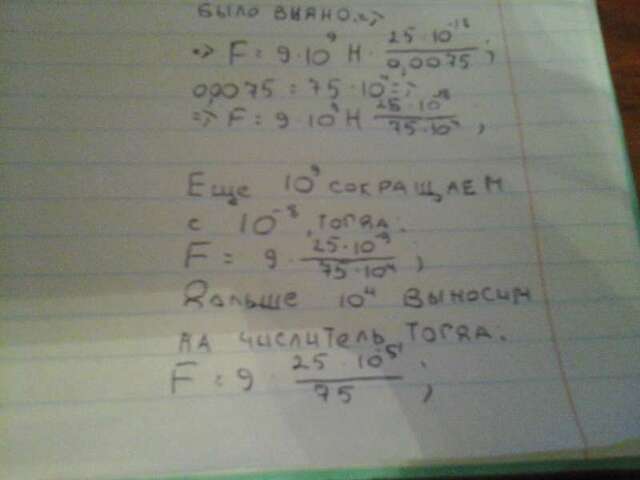 было видно. =>
=> F = 9·10⁹ Н · 25·10⁻¹⁸ / 0,0075 ;
0,0075 = 75·10⁻⁴ =>
=> F = 9·10⁹ Н 25·10⁻¹⁸ / 75·10⁻⁴ ,
Еще 10⁹ сокращаем
с 10⁻¹⁸, тогда:
F = 9 · 25·10⁻⁹ / 75·10⁻⁴ ;
Дальше 10⁴ выносим
на числитель, тогда.
F = 9 · 25·10⁻⁵ / 75 ;